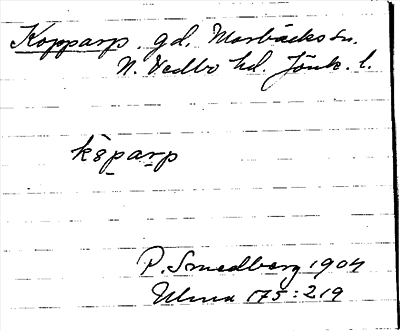 Kopparp. gd. Marbäcks sn.
N. Vedbo hd. Jönk. l.
kåparp
P. Smedberg 1904
Ulma 175:219